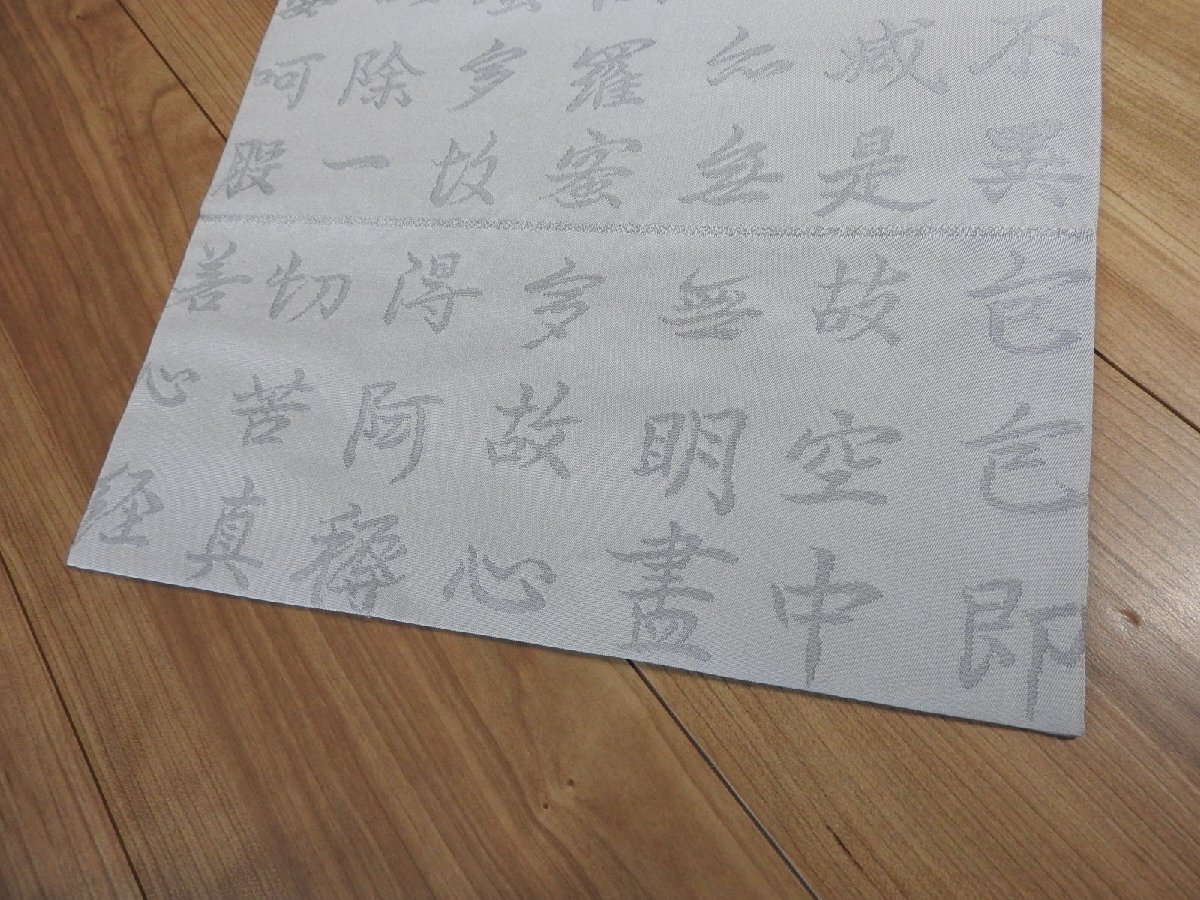 不異色色即
減是故空中
無無明盡
羅蜜多故心
多故得阿耨
除一切苦真
呵般善心經